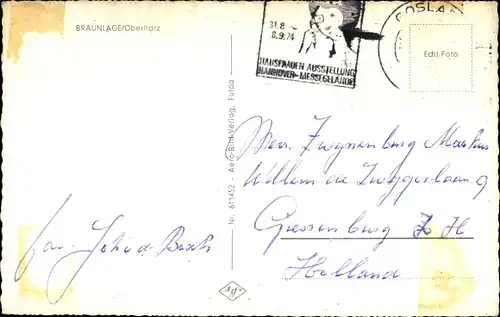 BRAUNLAGE/Oberharz
31.8
8.9.74
HAUSFRAUEN-AUSSTELLUNG
HANNOVER-MESSEGELÄNDE
GOSLAR
Echt Foto
Nr. 611452 · Aero-Bild-Verlag, Fulda
fam.
Willem de Zwygerlaan 9
Giessenburg Z H
Holland